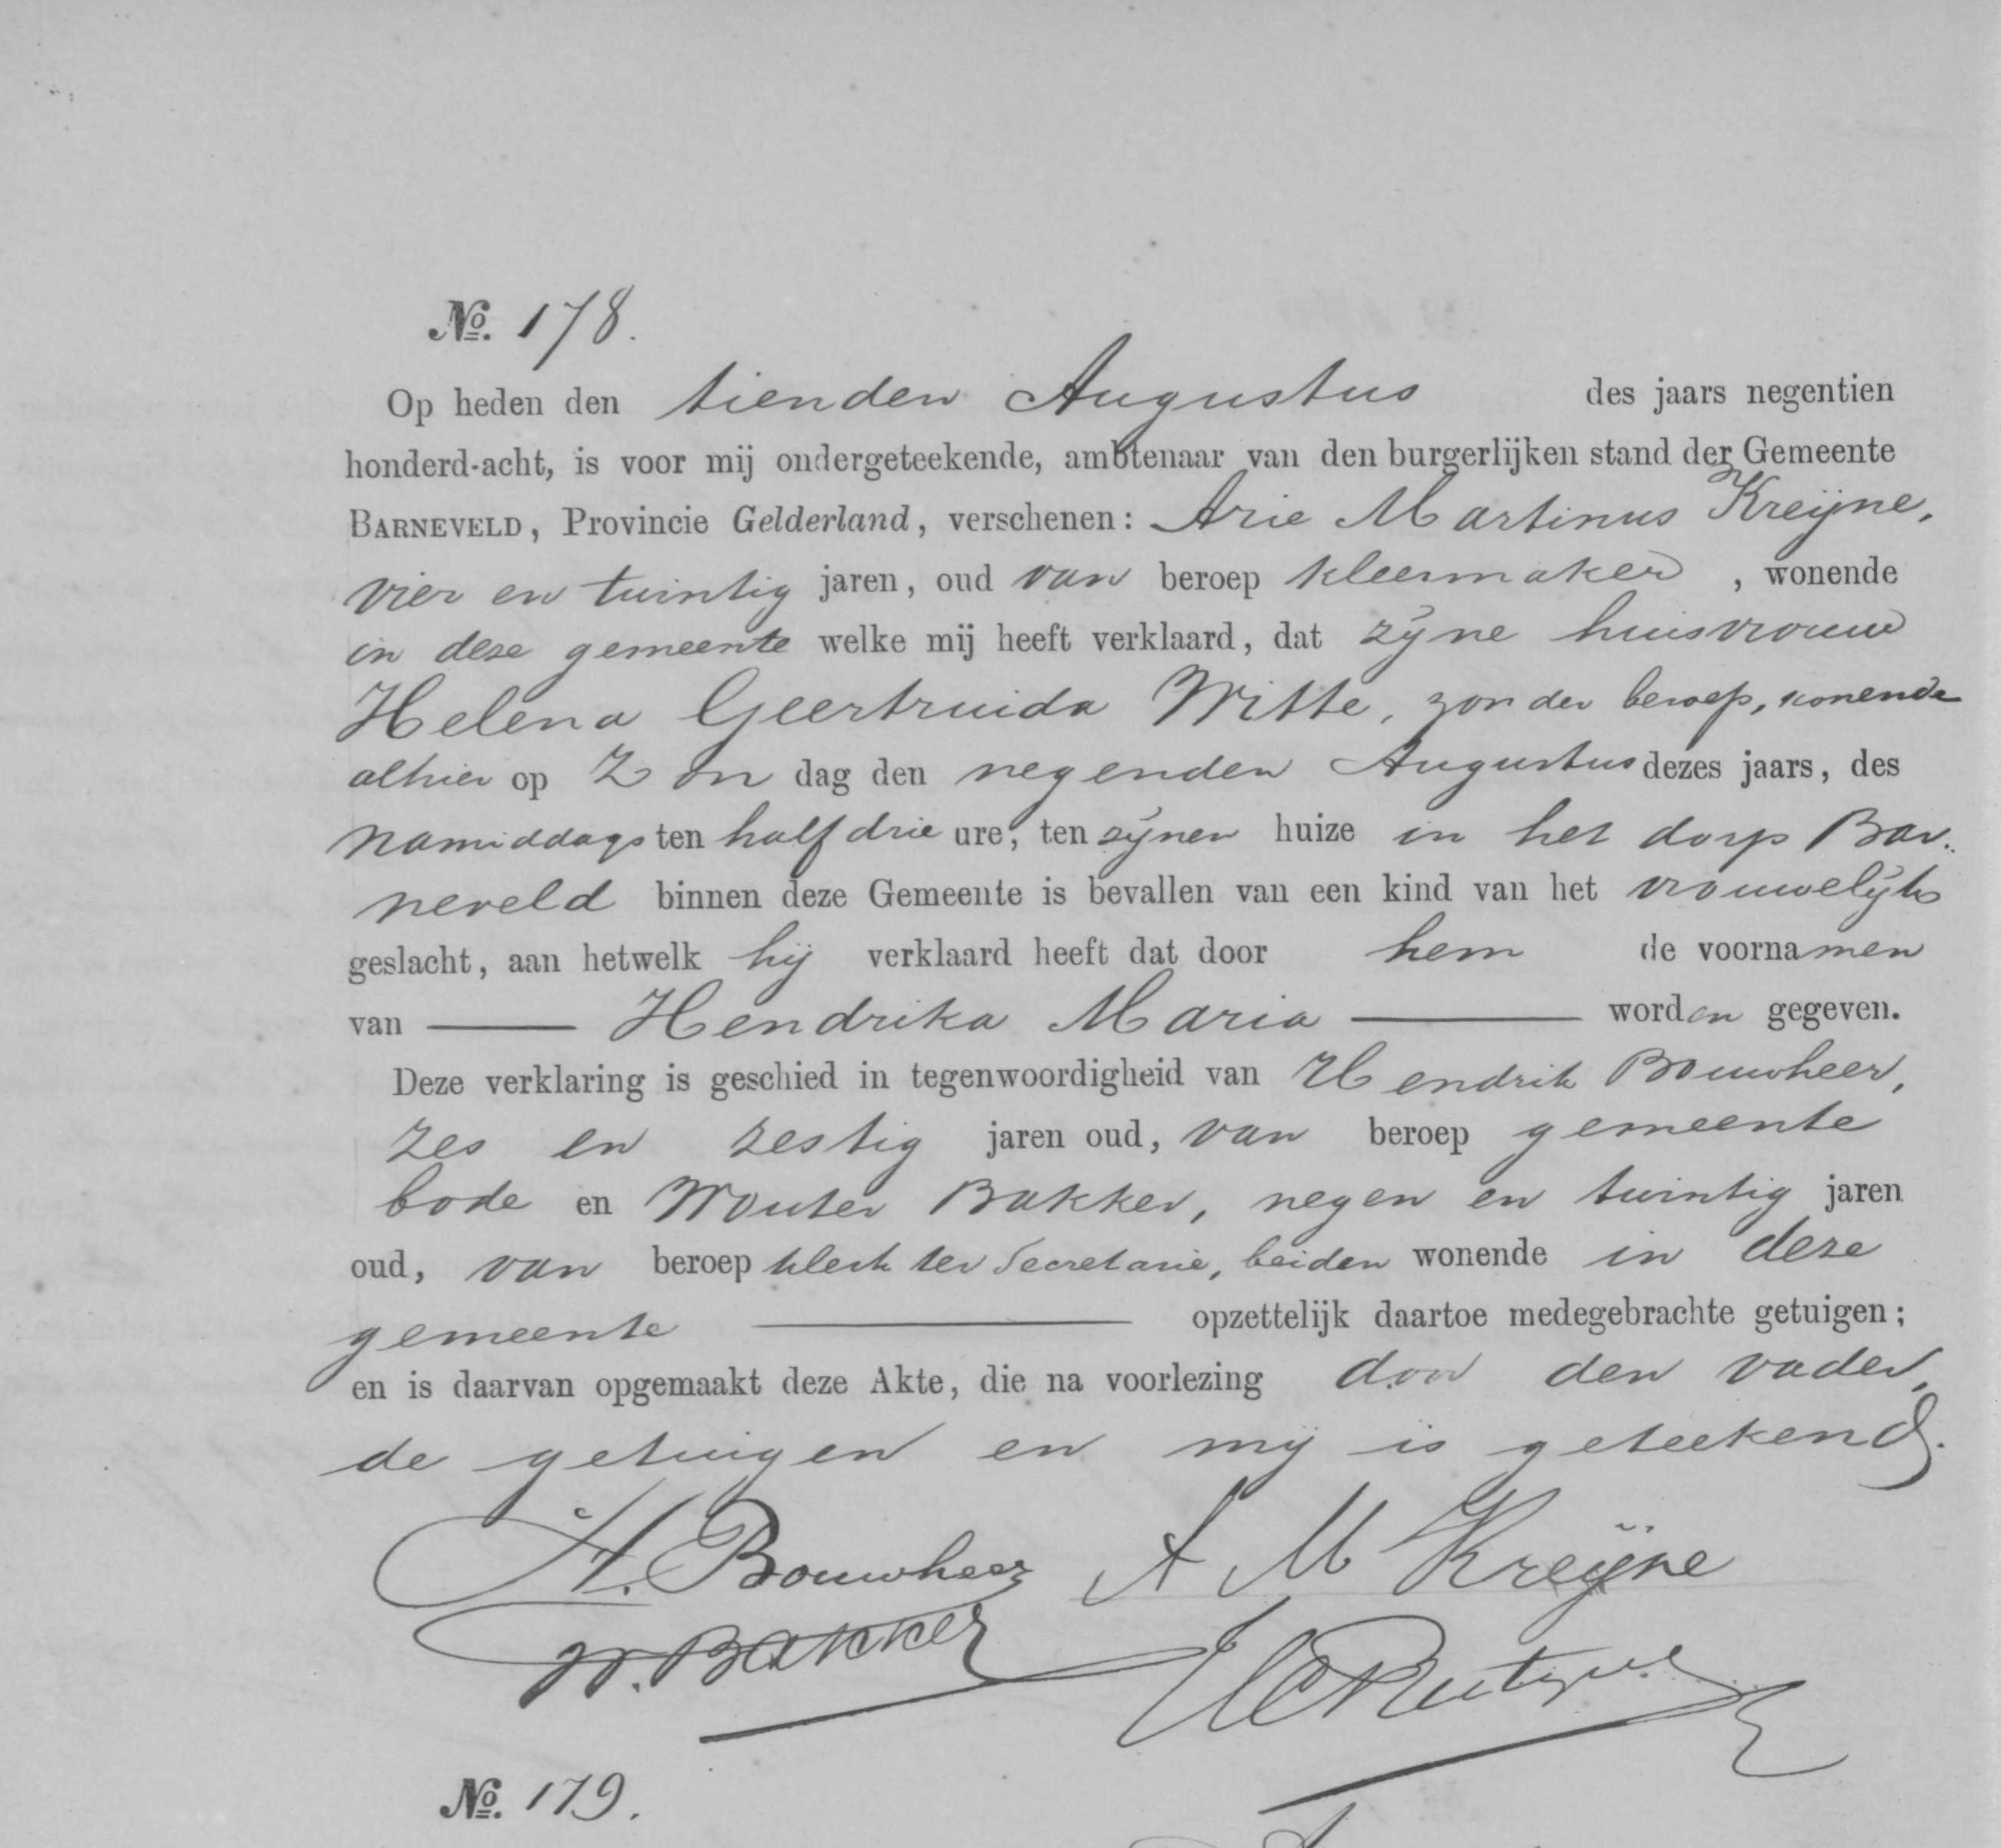 No. 178.
Op heden den tienden Augustus des jaars negentien
honderd-acht, is voor mij ondergeteekende, ambtenaar van den burgerlijken stand der Gemeente
BARNEVELD, Provincie Gelderland, verschenen: Arie Martinus Kreijne,
vier en twintig jaren, oud van beroep kleermaker, wonende
in deze gemeente welke mij heeft verklaard, dat zijne huisvrouw
Helena Geertruida Witte, zonder beroep, wonende
alhier op Zon dag den negenden Augustus dezes jaars, des
namiddags ten half drie ure, ten zijnen huize in het dorp Bar-
neveld binnen deze Gemeente is bevallen van een kind van het vrouwelijk
geslacht, aan hetwelk hij verklaard heeft dat door hem de voornamen
van Hendrika Maria worden gegeven.
Deze verklaring is geschied in tegenwoordigheid van Hendrik Bouwheer,
zes en zestig jaren oud, van beroep gemeente
bode en Wouter Bakker, negen en twintig jaren
oud, van beroep klerk ter Secretarie, beiden wonende in deze
gemeente opzettelijk daartoe medegebrachte getuigen;
en is daarvan opgemaakt deze Akte, die na voorlezing door den vader,
de getuigen en mij is geteekend.
H. Bouwheer A M Kreijne
W. Bakker
No. 179.